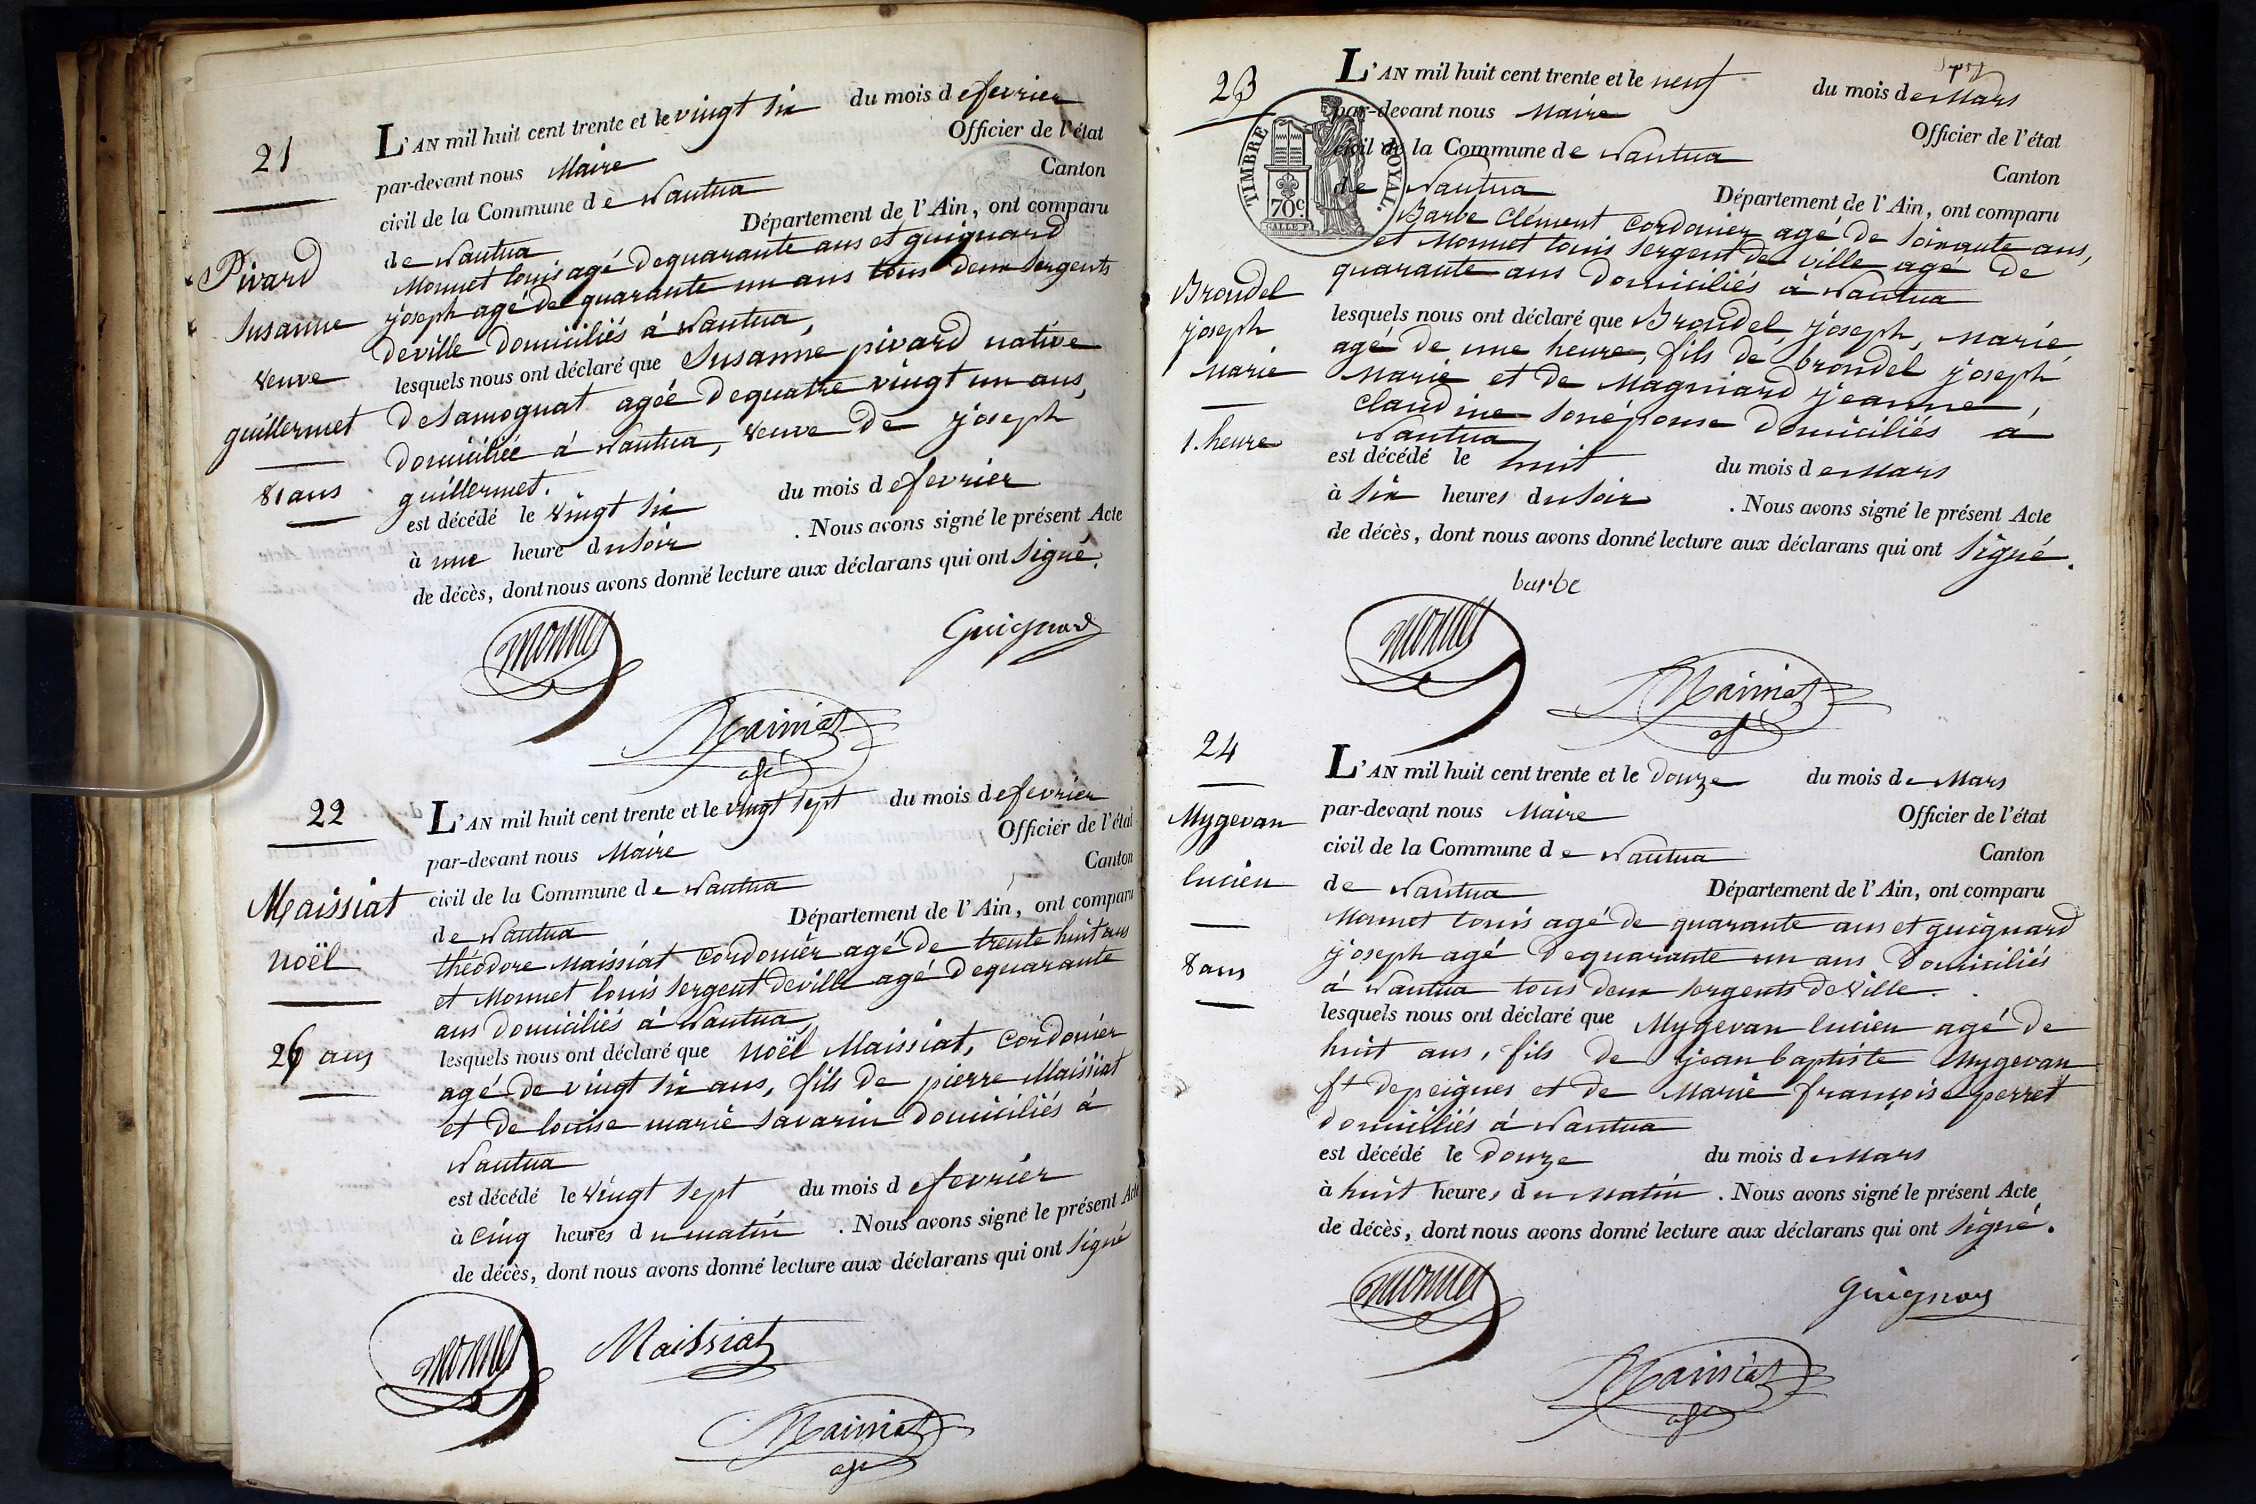 21
Pivard
Susanne
veuve
guillermet
81 ans
L'AN mil huit cent trente et le vingt six du mois de fevrier
par-devant nous Maire Officier de l'état
civil de la Commune de Nantua Canton
de Nantua Département de l'Ain, ont comparu
Monnet louis agé de quarante ans et guignard
joseph agé de quarante un ans tous deux sergents
de ville domiciliés à Nantua,
lesquels nous ont déclaré que Susanne pivard native
de Samognat agée de quatre vingt un ans,
domiciliée à Nantua, veuve de joseph
guillermet.
est décédé le vingt six du mois de fevrier
à une heure du soir . Nous avons signé le présent Acte
de décès, dont nous avons donné lecture aux déclarans qui ont signé.
Monnet
Guignard
Maissiat
22
Maissiat
Noël
26 ans
L'AN mil huit cent trente et le vingt sept du mois de fevrier
par-devant nous Maire Officier de l'état
civil de la Commune de Nantua Canton
de Nantua Département de l'Ain, ont comparu
théodore Maissiat cordonier agé de trente huit ans
et Monnet louis sergent de ville agé de quarante
ans domiciliés à Nantua
lesquels nous ont déclaré que Noël Maissiat, cordonier
agé de vingt six ans, fils de pierre Maissiat
et de louise marie Savarin domiciliés à
Nantua
est décédé le vingt sept du mois de fevrier
à cinq heures du matin . Nous avons signé le présent Acte
de décès, dont nous avons donné lecture aux déclarans qui ont signé
Monnet
Maissiat
Maissiat
23
Brondel
joseph
Marie
1. heure
TIMBRE ROYAL.
70c.
L'AN mil huit cent trente et le neuf du mois de Mars
par-devant nous Maire Officier de l'état
civil de la Commune de Nantua Canton
de Nantua Département de l'Ain, ont comparu
Barbe Clément cordonier agé de soixante ans,
et Monnet louis sergent de ville agé de
quarante ans domiciliés à Nantua
lesquels nous ont déclaré que Brondel, joseph, Marie
agé de une heure, fils de brondel joseph
Marie et de Magniard jeanne,
claudine son épouse domiciliés à
Nantua
est décédé le huit du mois de Mars
à six heures du soir . Nous avons signé le présent Acte
de décès, dont nous avons donné lecture aux déclarans qui ont signé.
barbe
Monnet
Maissiat
24
Mygevan
lucien
8 ans
L'AN mil huit cent trente et le douze du mois de Mars
par-devant nous Maire Officier de l'état
civil de la Commune de Nantua Canton
de Nantua Département de l'Ain, ont comparu
Monnet louis agé de quarante ans et guignard
joseph agé de quarante un ans domiciliés
à Nantua tous deux sergents de ville.
lesquels nous ont déclaré que Mygevan lucien agé de
huit ans, fils de jean baptiste Mygevan
ft de peignes et de Marie françoise perret
domiciliés à Nantua
est décédé le douze du mois de Mars
à huit heures du matin . Nous avons signé le présent Acte
de décès, dont nous avons donné lecture aux déclarans qui ont signé.
Monnet
Guignard
Maissiat